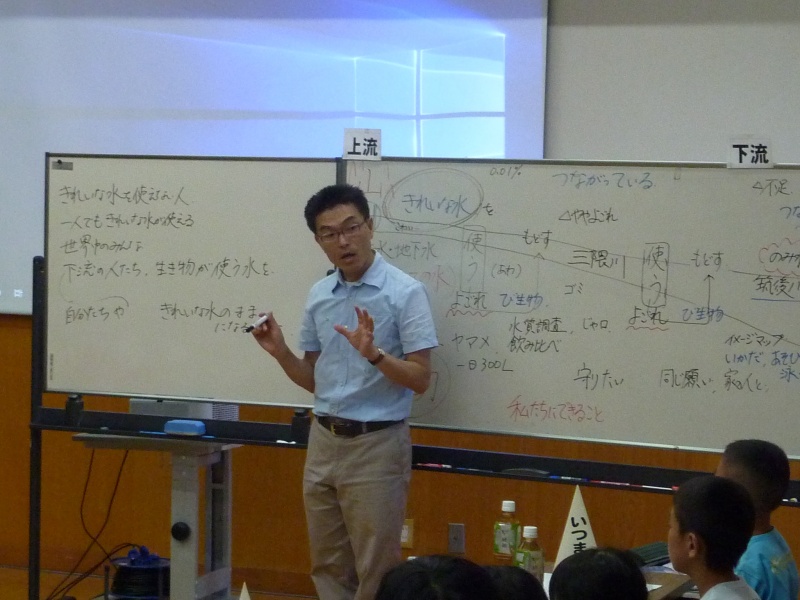 上流
下流
きれいな水を使えない人
一人でもきれいな水が使える
世界中のみんな
下流の人たち、生き物が使う水を
自分たちや
きれいな水のまま
0.01%
つながっている
きれいな水
を
水・地下水
使う
よごれ
び生物
もどす
ややよごれ
三隈川
ゴミ
使う
よごれ
もどす
び生物
不足
筑後川
ヤマメ
水質調査
飲み比べ
一日300L
じゃ口
守りたい
同じ願い
イメージマップ
いかだ
私たちにできること
いつま